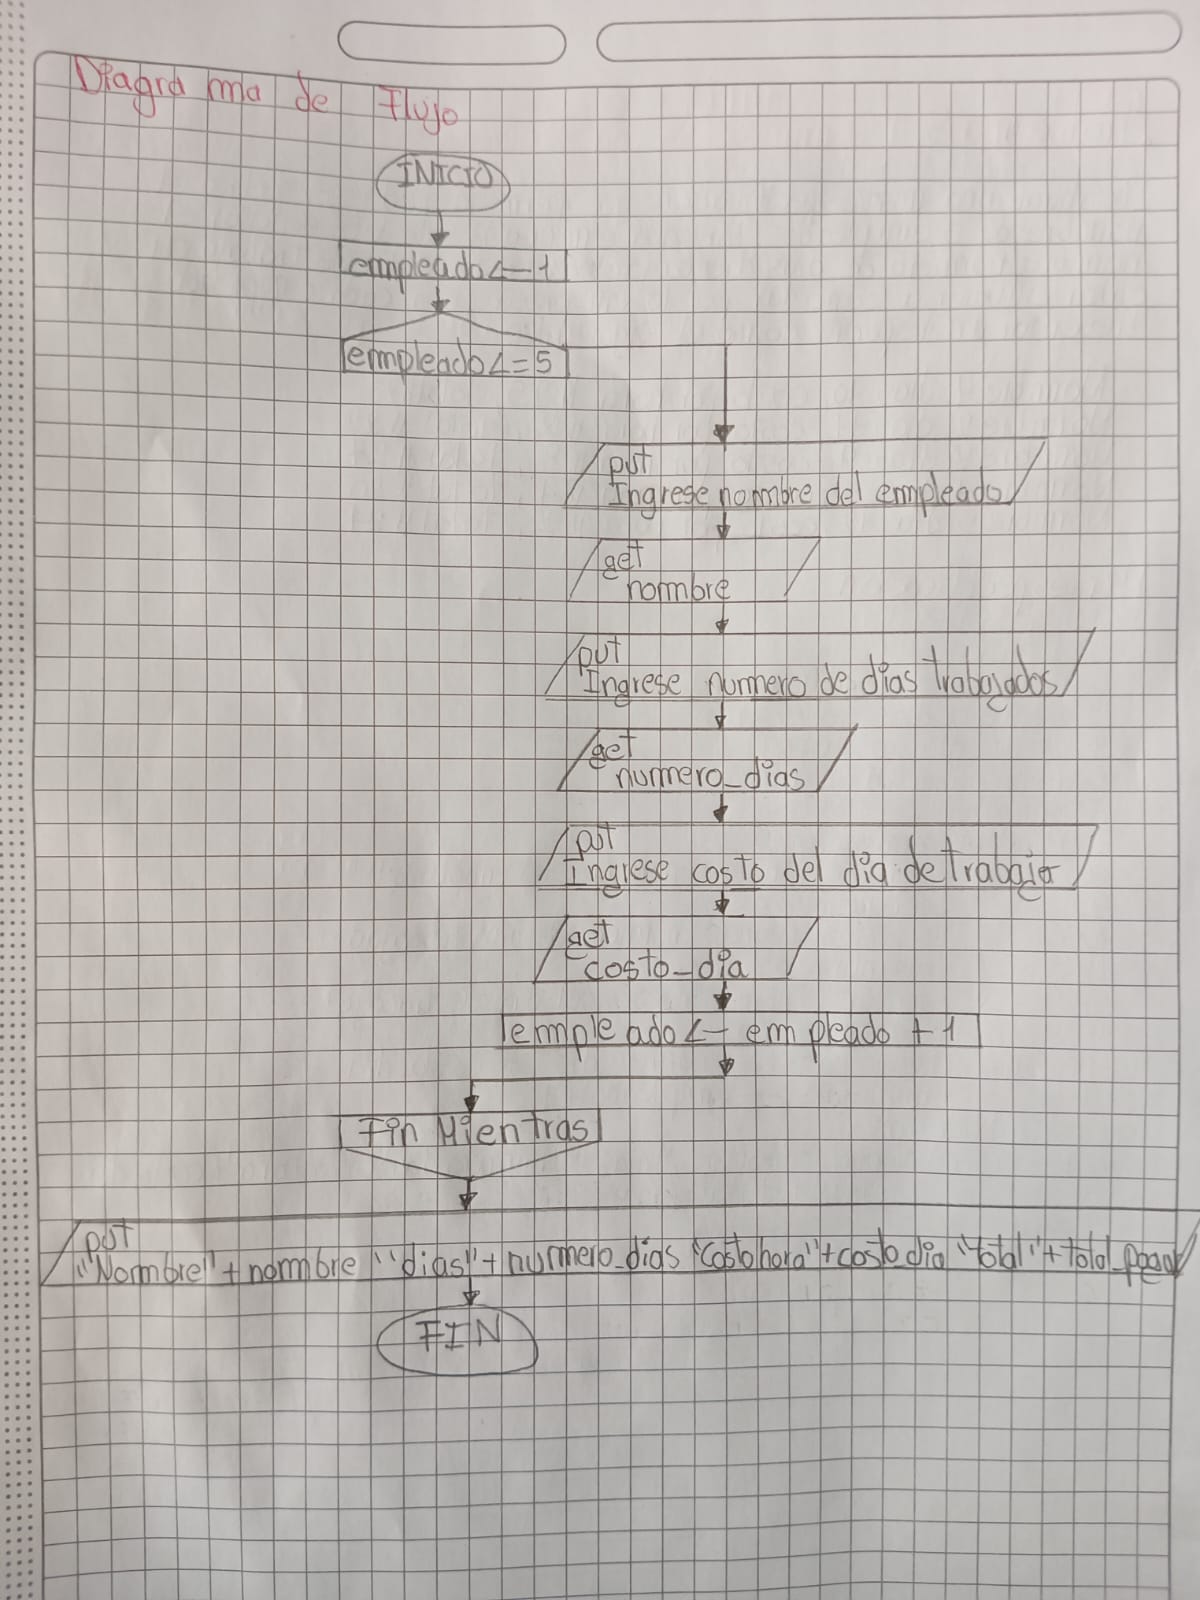 Diagrama de Flujo
INICIO
empleado <- 1
empleado <= 5
put
Ingrese nombre del empleado
get
nombre
put
Ingrese numero de dias trabajados
get
numero_dias
put
Ingrese costo del dia de trabajo
get
costo_dia
empleado <- empleado + 1
Fin Mientras
put
"Nombre" + nombre "dias" + numero_dias "costo hora" + costo dia "total" + total_pagar
FIN